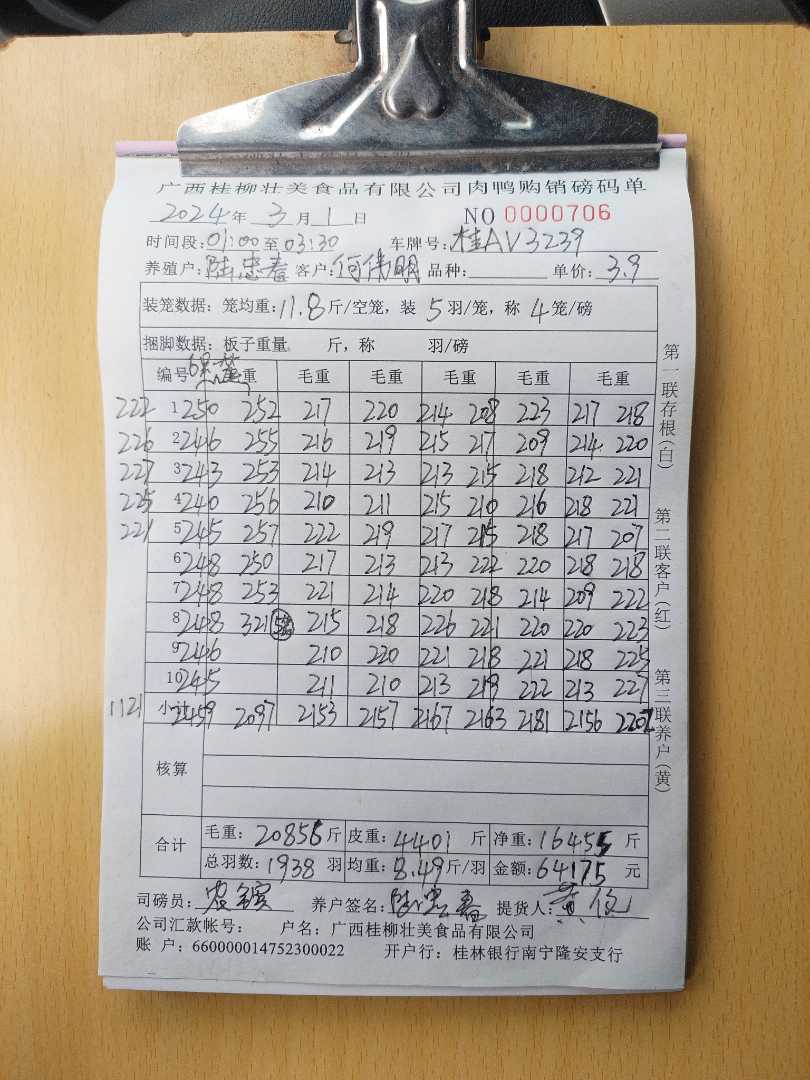 广西桂柳壮美食品有限公司肉鸭购销磅码单
2024年 3月 1日 NO 0000706
时间段:01:00至03:30 车牌号:桂AV3239
养殖户:陆忠春 客户:何伟明 品种: 单价:3.9
装笼数据:笼均重:11.8斤/空笼,装 5 羽/笼,称 4 笼/磅
捆脚数据:板子重量 斤,称 羽/磅
编号 毛重 毛重 毛重 毛重 毛重 毛重
222 1 250 252 217 220 214 208 223 217 218
226 2 246 255 216 219 215 217 209 214 220
227 3 243 253 214 213 213 215 218 212 221
225 4 240 256 210 211 215 210 216 218 221
221 5 245 257 222 219 217 215 218 217 207
6 248 250 217 213 213 222 220 218 218
7 248 253 221 214 220 218 214 209 222
8 248 321 215 218 226 221 220 220 223
9 246 210 220 221 218 221 218 225
10 245 211 210 213 219 222 213 227
1121 小计 2459 2097 2153 2157 2167 2163 2181 2156 2202
核算
合计
毛重:20856斤 皮重:4401 斤 净重:16455 斤
总羽数:1938 羽 均重:8.49斤/羽 金额:64175 元
司磅员: 养户签名:陆忠春 提货人:
公司汇款帐号: 户名:广西桂柳壮美食品有限公司
账 户:660000014752300022 开户行:桂林银行南宁隆安支行
第一联存根(白)
第二联客户(红)
第三联养户(黄)